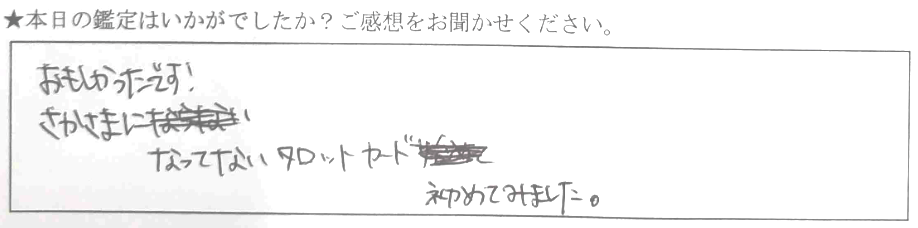 ★本日の鑑定はいかがでしたか？ご感想をお聞かせください。
おもしかったです！
さかさまに
なってないタロットカード
初めてみました。